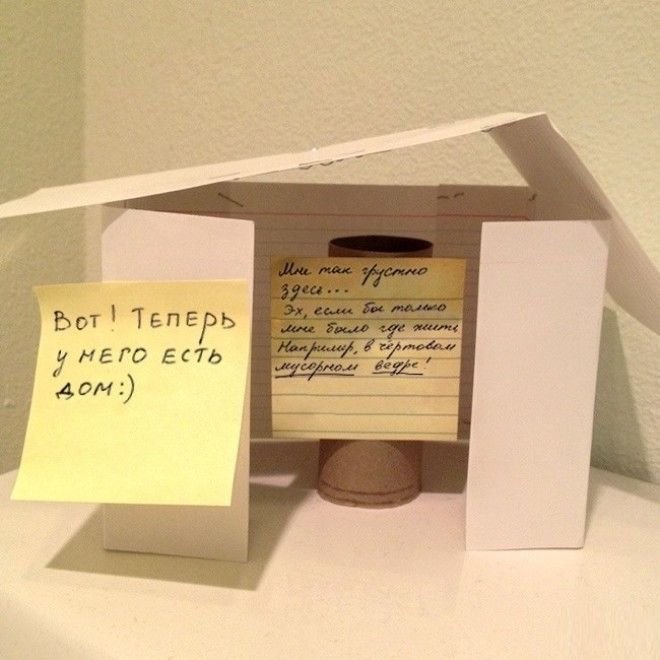 Вот! Теперь
у него есть
дом:)
Мне так грустно
здесь...
Эх, если бы только
мне было где жить
Например, в чертовом
мусорном ведре!